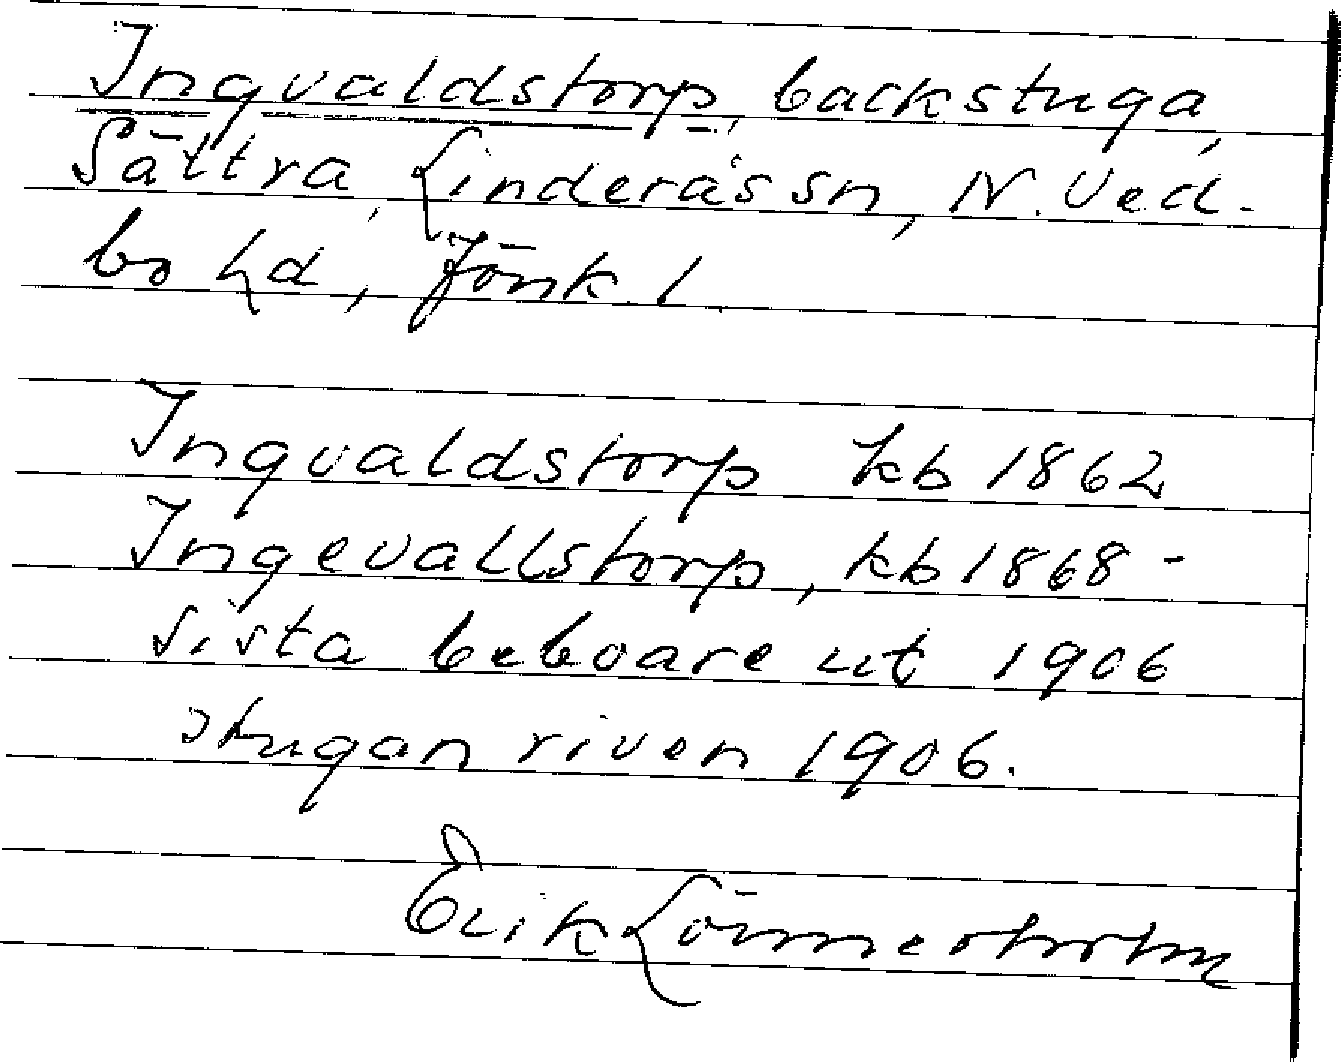 Ingvaldstorp, backstuga,
Sättra, Linderås sn, N. Ved-
bo hd, Jönk. l.
Ingvaldstorp kb 1862
Ingevallstorp, kb 1868-
sista beboare ut 1906
stugan riven 1906.
Erik Lönnerholm